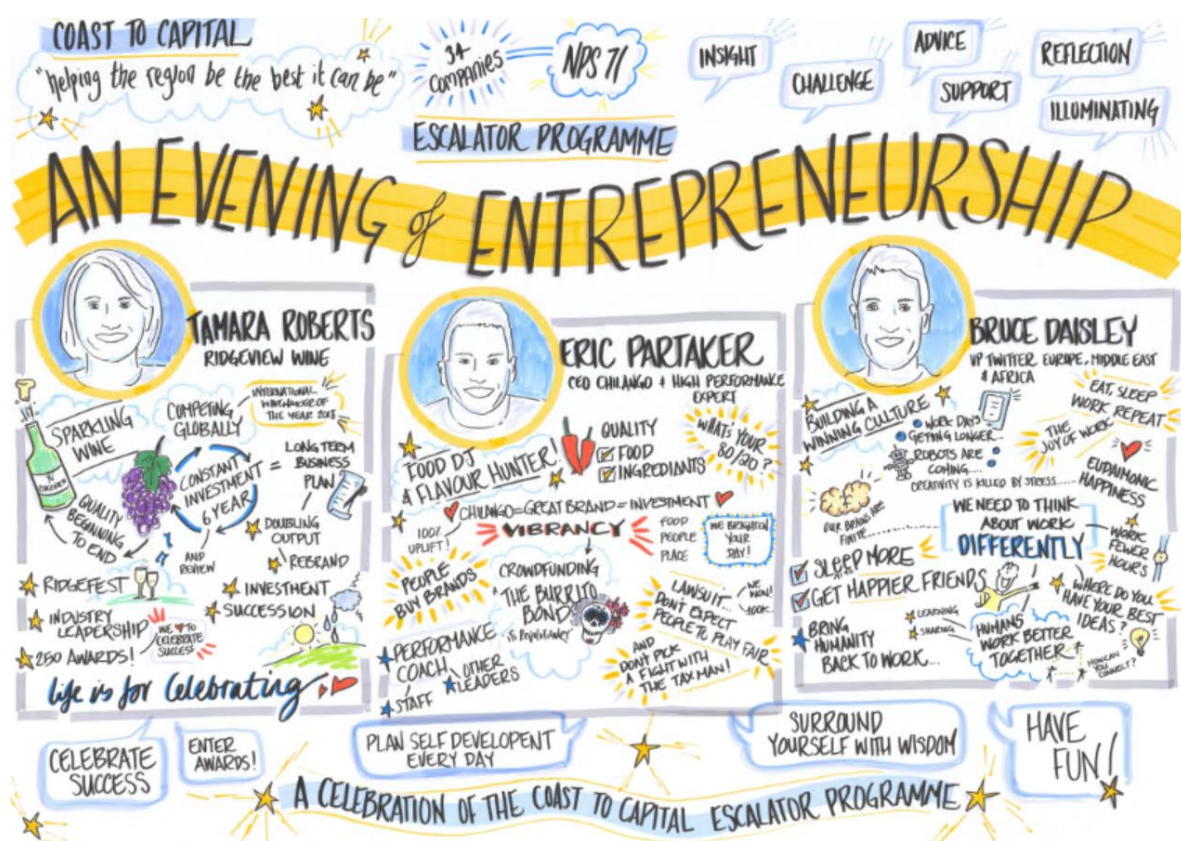 COAST TO CAPITAL
"helping the region be the best it can be"
34
Companies
NPS 71
ESCALATOR PROGRAMME
INSIGHT
CHALLENGE
ADVICE
SUPPORT
REFLECTION
ILLUMINATING
AN EVENING of ENTREPRENEURSHIP
TAMARA ROBERTS
RIDGEVIEW WINE
SPARKLING
WINE
COMPETING
GLOBALLY
INTERNATIONAL
WINEMAKER OF
THE YEAR 2018
QUALITY
BEGINNING
TO END
CONSTANT
INVESTMENT
6 YEAR
AND
REVIEW
=
LONG TERM
BUSINESS
PLAN
DOUBLING
OUTPUT
REBRAND
INVESTMENT
SUCCESSION
RIDGEFEST
INDUSTRY
LEADERSHIP
WE TO
CELEBRATE
SUCCESS
250 AWARDS!
Life is for Celebrating
ERIC PARTAKER
CEO CHILANGO & HIGH PERFORMANCE
EXPERT
FOOD DJ
& FLAVOUR HUNTER!
QUALITY
FOOD
INGREDIANTS
WHAT'S YOUR
80/20?
CHILANGO = GREAT BRAND = INVESTMENT
100%
UPLIFT!
VIBRANCY
FOOD
PEOPLE
PLACE
WE BRIGHTEN
YOUR
DAY!
PEOPLE
BUY BRANDS
CROWDFUNDING
THE BURRITO
BOND
LAWSUIT...
DON'T EXPECT
PEOPLE TO PLAY FAIR
WE
WON!
100K
AND
DON'T PICK
A FIGHT WITH
THE TAX MAN!
PERFORMANCE
COACH
STAFF
OTHER
LEADERS
BRUCE DAISLEY
VP TWITTER EUROPE, MIDDLE EAST
& AFRICA
BUILDING A
WINNING CULTURE
WORK DAYS
GETTING LONGER...
ROBOTS ARE
COMING....
CREATIVITY IS KILLED BY STRESS......
EAT, SLEEP
WORK REPEAT
THE
JOY OF WORK
EUDAIMONIC
HAPPINESS
OUR BRAINS ARE
FINITE...
WE NEED TO THINK
ABOUT WORK
DIFFERENTLY
WORK
FEWER
HOURS
SLEEP MORE
GET HAPPIER FRIENDS
BRING
HUMANITY
BACK TO WORK...
LEARNING
SHARING
HUMANS
WORK BETTER
TOGETHER
WHERE DO YOU
HAVE YOUR BEST
IDEAS?
HOW CAN
YOU
CONNECT?
CELEBRATE
SUCCESS
ENTER
AWARDS!
PLAN SELF DEVELOPENT
EVERY DAY
SURROUND
YOURSELF WITH WISDOM
HAVE
FUN!
A CELEBRATION OF THE COAST TO CAPITAL ESCALATOR PROGRAMME